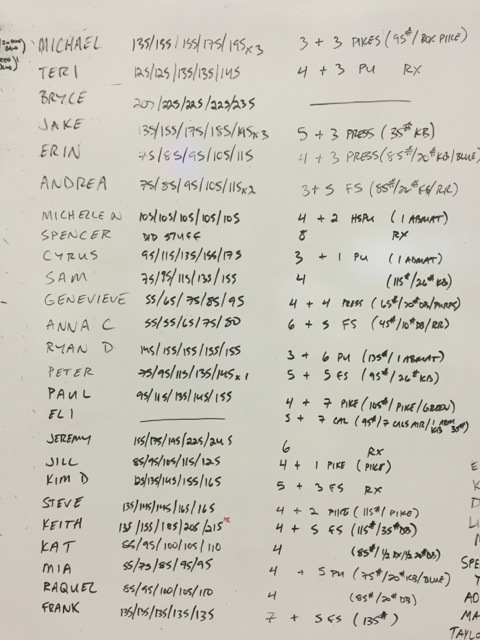 MICHAEL 135/155/155/175/195x3 3 + 3 PIKES (95#/BOX PIKE)
TERI 125/125/135/135/145 4 + 3 PU RX
BRYCE 205/225/225/225/235
JAKE 135/155/175/185/195x3 5 + 3 PRESS (35# KB)
ERIN 75/85/95/105/115 4 + 3 PRESS (85#/20# KB/BLUE)
ANDREA 75/85/95/105/115x2 3 + 5 FS (85#/26# KB/RR)
MICHELLE N 105/105/105/105/105 4 + 2 HSPU (1 ABMAT)
SPENCER DID STUFF 8 RX
CYRUS 95/115/135/155/175 3 + 1 PU (1 ABMAT)
SAM 75/95/115/135/155 4 (115#/26# KB)
GENEVIEVE 55/65/75/85/95 4 + 4 PRESS (65#/20# DB/PURPS)
ANNA C 55/55/65/75/80 6 + 5 FS (45#/10# DB/RR)
RYAN D 145/155/155/155/155 3 + 6 PU (135#/1 ABMAT)
PETER 75/95/115/135/145x1 5 + 5 FS (95#/26# KB)
PAUL 95/115/135/145/155 4 + 7 PIKE (105#/PIKE/GREEN)
ELI 5 + 7 CAL (95#/7 CALS AIR/1 ARM KB 35#)
JEREMY 155/175/195/225/245 6 RX
JILL 85/95/105/115/125 4 + 1 PIKE (PIKE)
KIM D 125/135/145/155/165 5 + 3 FS RX
STEVE 135/145/145/165/165 4 + 2 PIKE (115#/PIKE)
KEITH 135/155/185/205/215 4 + 5 FS (115#/35# DB)
KAT 85/95/100/105/110 4 (85#/½ RX/½ 20# DB)
MIA 55/75/85/95/95 4 + 5 PU (75#/20# KB/BLUE)
RAQUEL 85/95/100/105/110 4 (85#/20# DB)
FRANK 135/135/135/135/135 7 + 5 FS (135#)